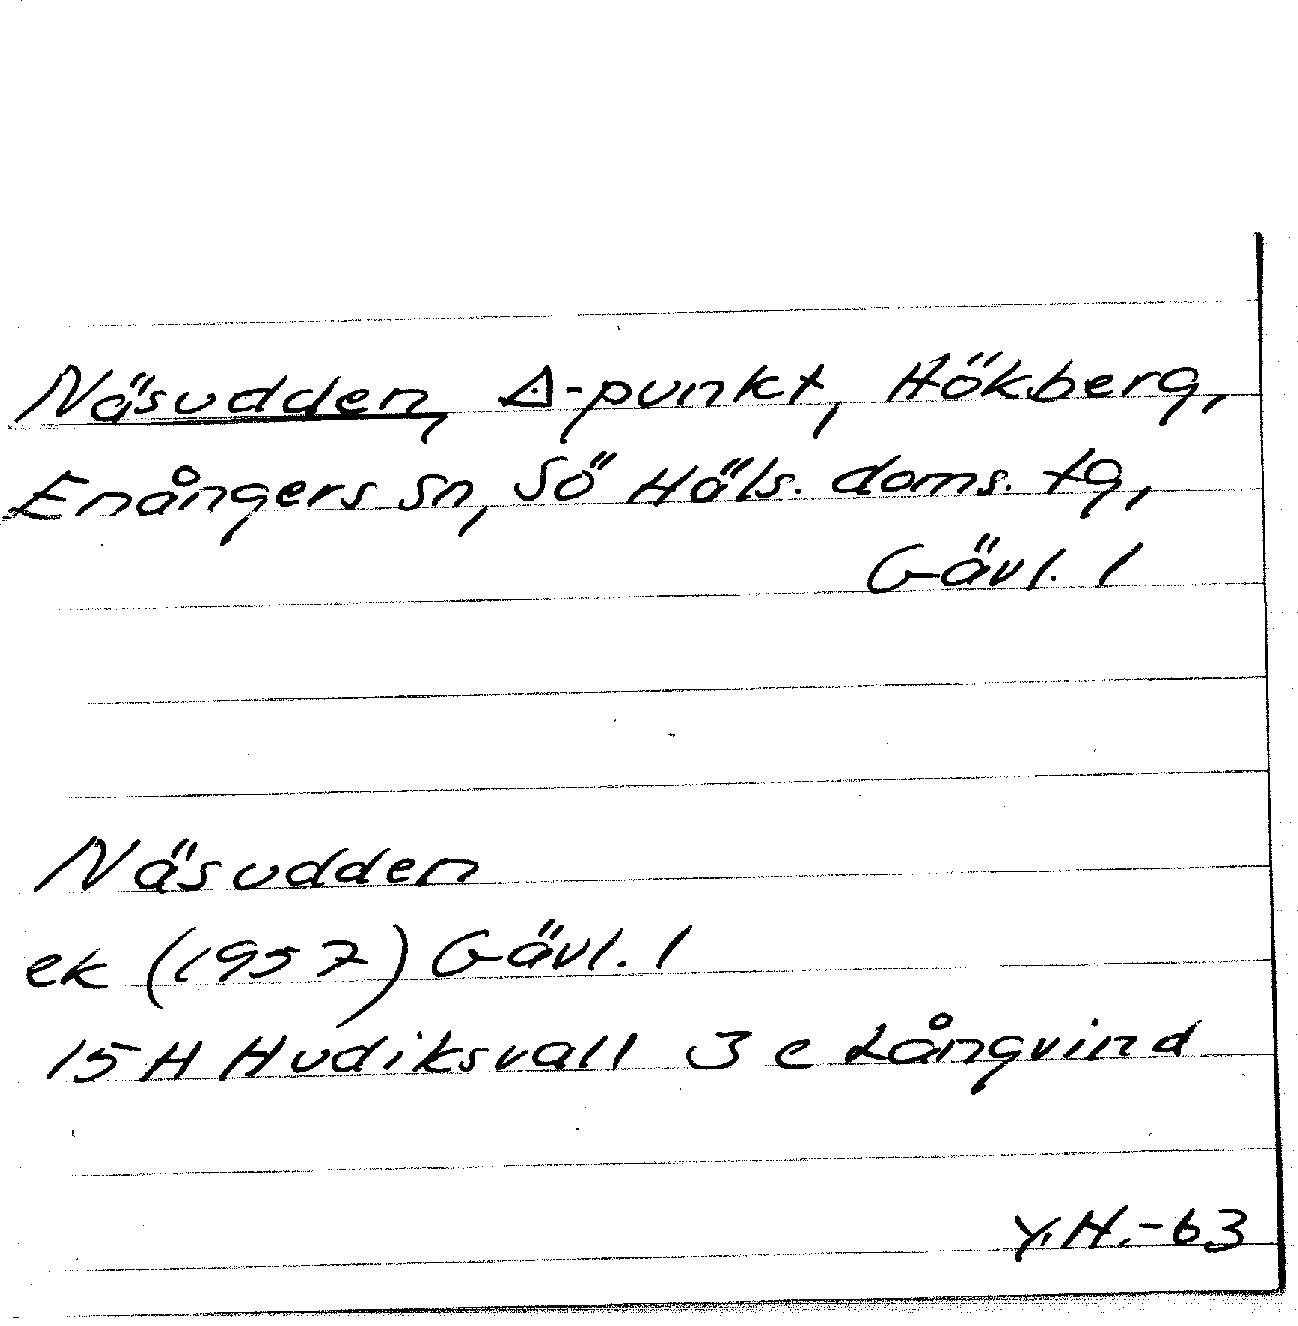 Näsudden, △-punkt, Hökberg,
Enångers sn, Sö Häls. doms. tg,
Gävl. 1
Näsudden
ek (1957) Gävl. 1
15 H Hudiksvall 3 c Långvind
Y.H.-63